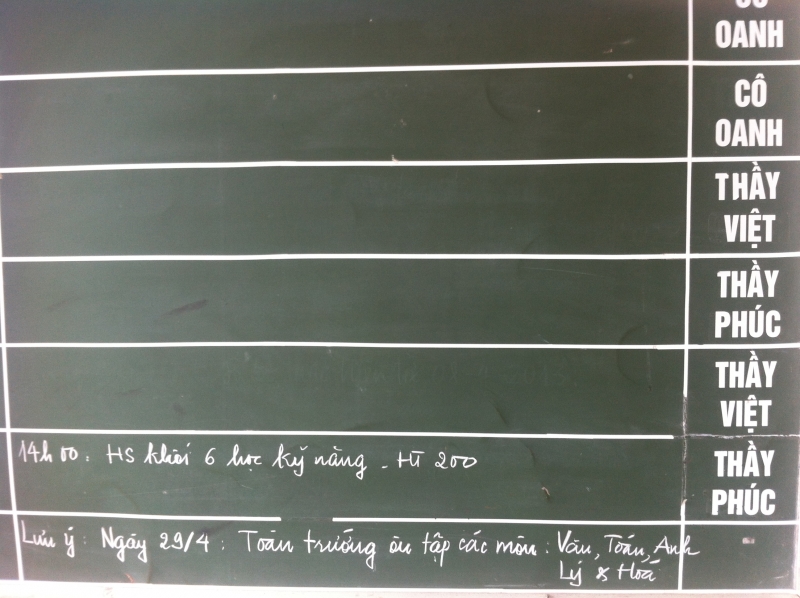 OANH
CÔ
OANH
THẦY
VIỆT
THẦY
PHÚC
THẦY
VIỆT
14h00: HS khối 6 học kỹ năng - HT 200
THẦY
PHÚC
Lưu ý: Ngày 29/4: Toàn trường ôn tập các môn: Văn, Toán, Anh
Lý & Hoá